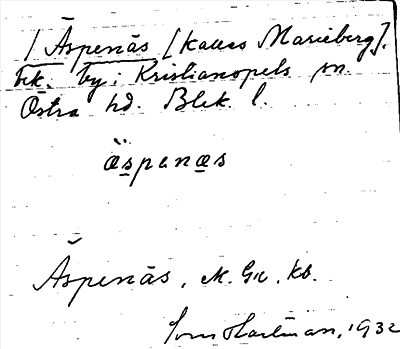 Äspenäs [kallas Marieberg],
bek. by; Kristianopels sn.
Östra hd. Blek. l.
äspenäs
Äspenäs,
Hartman, 1932